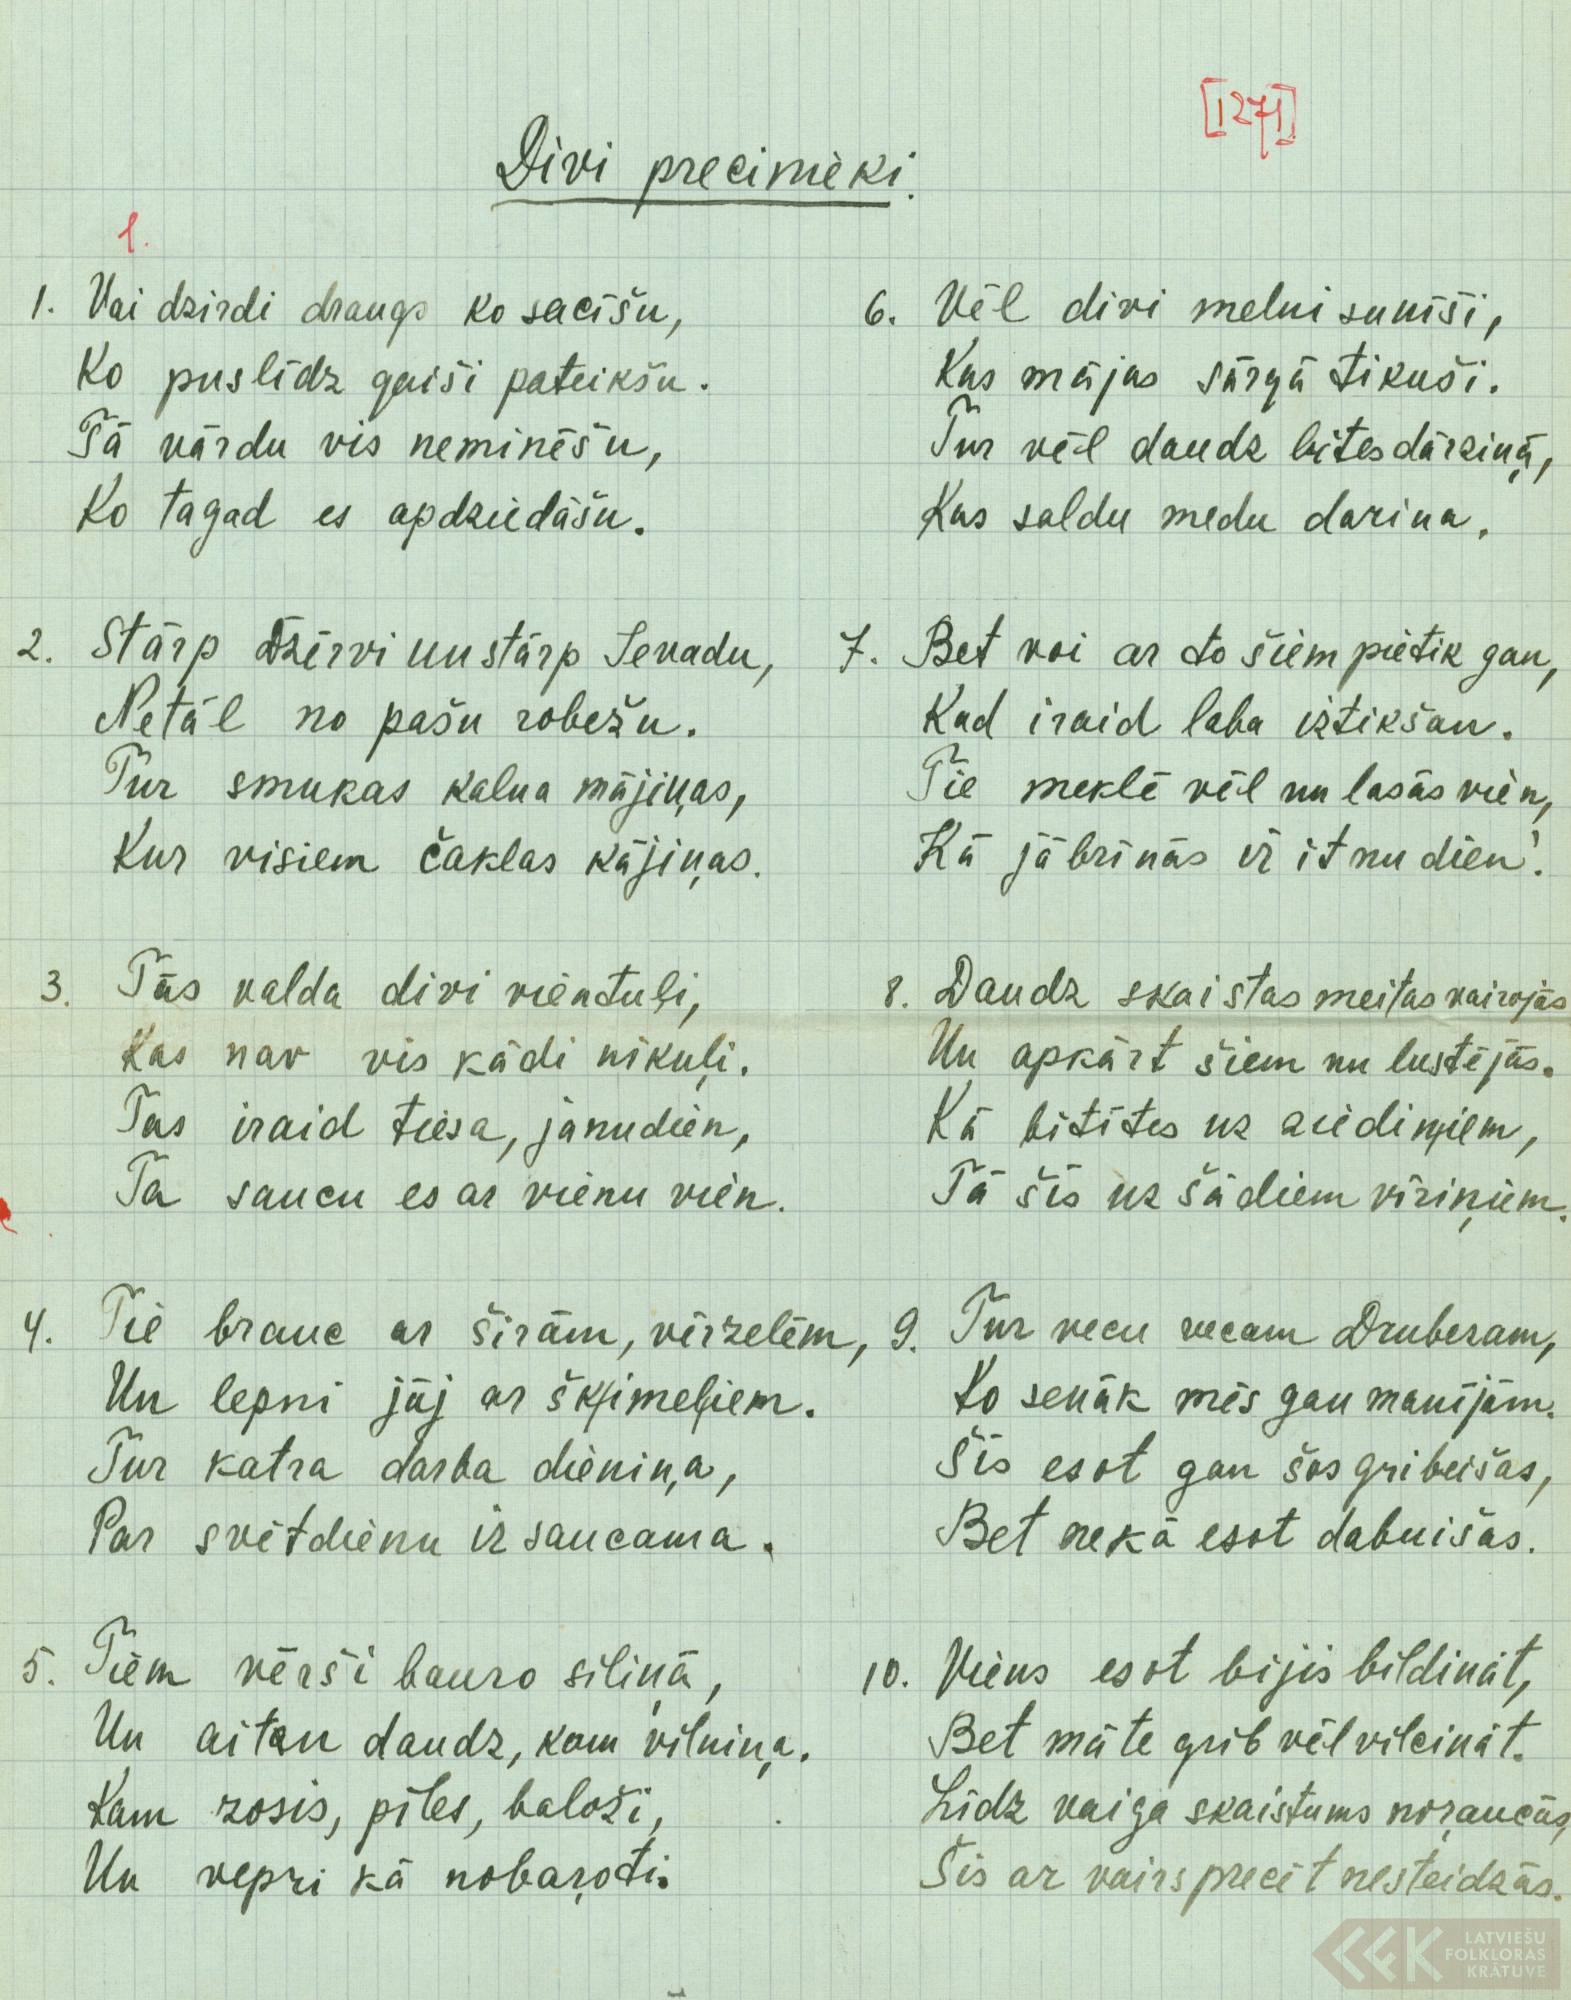 [1271]
Divi precinieki.
1.
1. Vai dzirdi draugs ko sacīšu,
Ko puslīdz gaiši pateikšu.
Tā vārdu vis neminēšu,
Ko tagad es apdziedāšu.
2. Stārp Dzērvi un stārp Ievadu,
Netāl no pašu robežu.
Tur smukas kalna mājiņas,
Kur visiem čaklas kājiņas.
3. Tās valda divi vientuļi,
Kas nav vis kādi nīkuļi.
Tas iraid tiesa, jānudien,
Ta saucu es ar vienu vien.
4. Tie brauc ar širām, vērzelēm,
Un lepni jāj ar šķimeļiem.
Tur katra darba dieniņa,
Par svētdienu ir saucama.
5. Tiem vērši bauro siliņā,
Un aitan daudz, kam vilniņa.
Kam zosis, pīles, baloži,
Un vepri kā nobaŗoti.
6. Vēl divi melni sunīši,
Kas mājas sārgā tikuši.
Tur vēl daudz bites dārziņā,
Kas saldu medu darina.
7. Bet voi ar to šiem pietik gan,
Kad iraid laba iztikšan.
Tie meklē vēl un lasās vien,
Kā jābrīnās ir it nu dien!
8. Daudz skaistas meitas vairojās
Un apkārt šiem nu lustējās.
Kā bitītes uz ziediņiem,
Tā šīs uz šādiem vīriņiem.
9. Tur vecu vecam Druberam,
Ko senāk mēs gan manījām.
Šīs esot gan šos gribeišas,
Bet nekā esot dabuišas.
10. Viens esot bijis bildināt,
Bet māte grib vēl vilcināt.
Līdz vaiga skaistums noŗaucās,
Šis ar vairs precēt nesteidzās.
LATVIEŠU
FOLKLORAS
KRĀTUVE